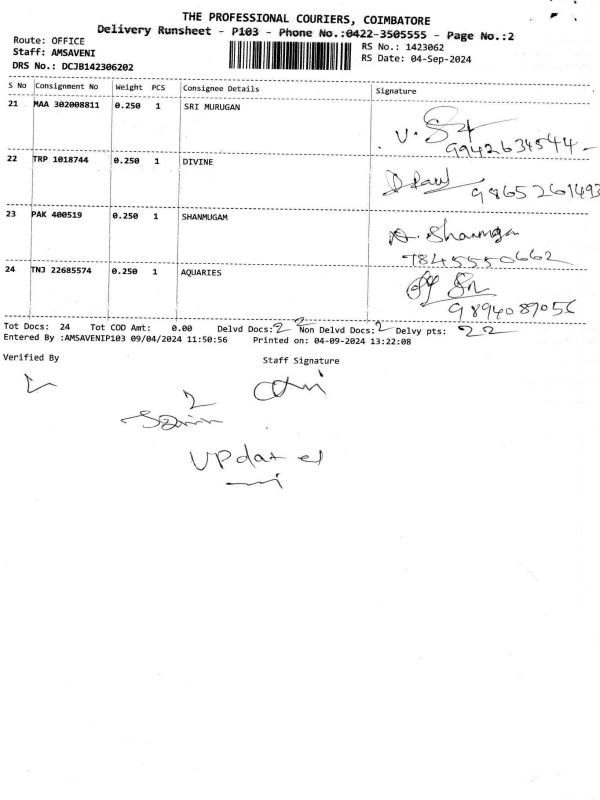 THE PROFESSIONAL COURIERS, COIMBATORE
Delivery Runsheet - P103 - Phone No.:0422-3505555 - Page No.:2
Route: OFFICE RS No.: 1423062
Staff: AMSAVENI RS Date: 04-Sep-2024
DRS No.: DCJB142306202
S No Consignment No Weight PCS Consignee Details Signature
21 MAA 302008811 0.250 1 SRI MURUGAN
9942634544
22 TRP 1018744 0.250 1 DIVINE
9865261493
23 PAK 400519 0.250 1 SHANMUGAM A. Shanmugam
7845550662
24 TNJ 22685574 0.250 1 AQUARIES
9894087056
Tot Docs: 24 Tot COD Amt: 0.00 Delvd Docs: 22 Non Delvd Docs: 2 Delvy pts: 22
Entered By :AMSAVENIP103 09/04/2024 11:50:56 Printed on: 04-09-2024 13:22:08
Verified By Staff Signature
2
Updated